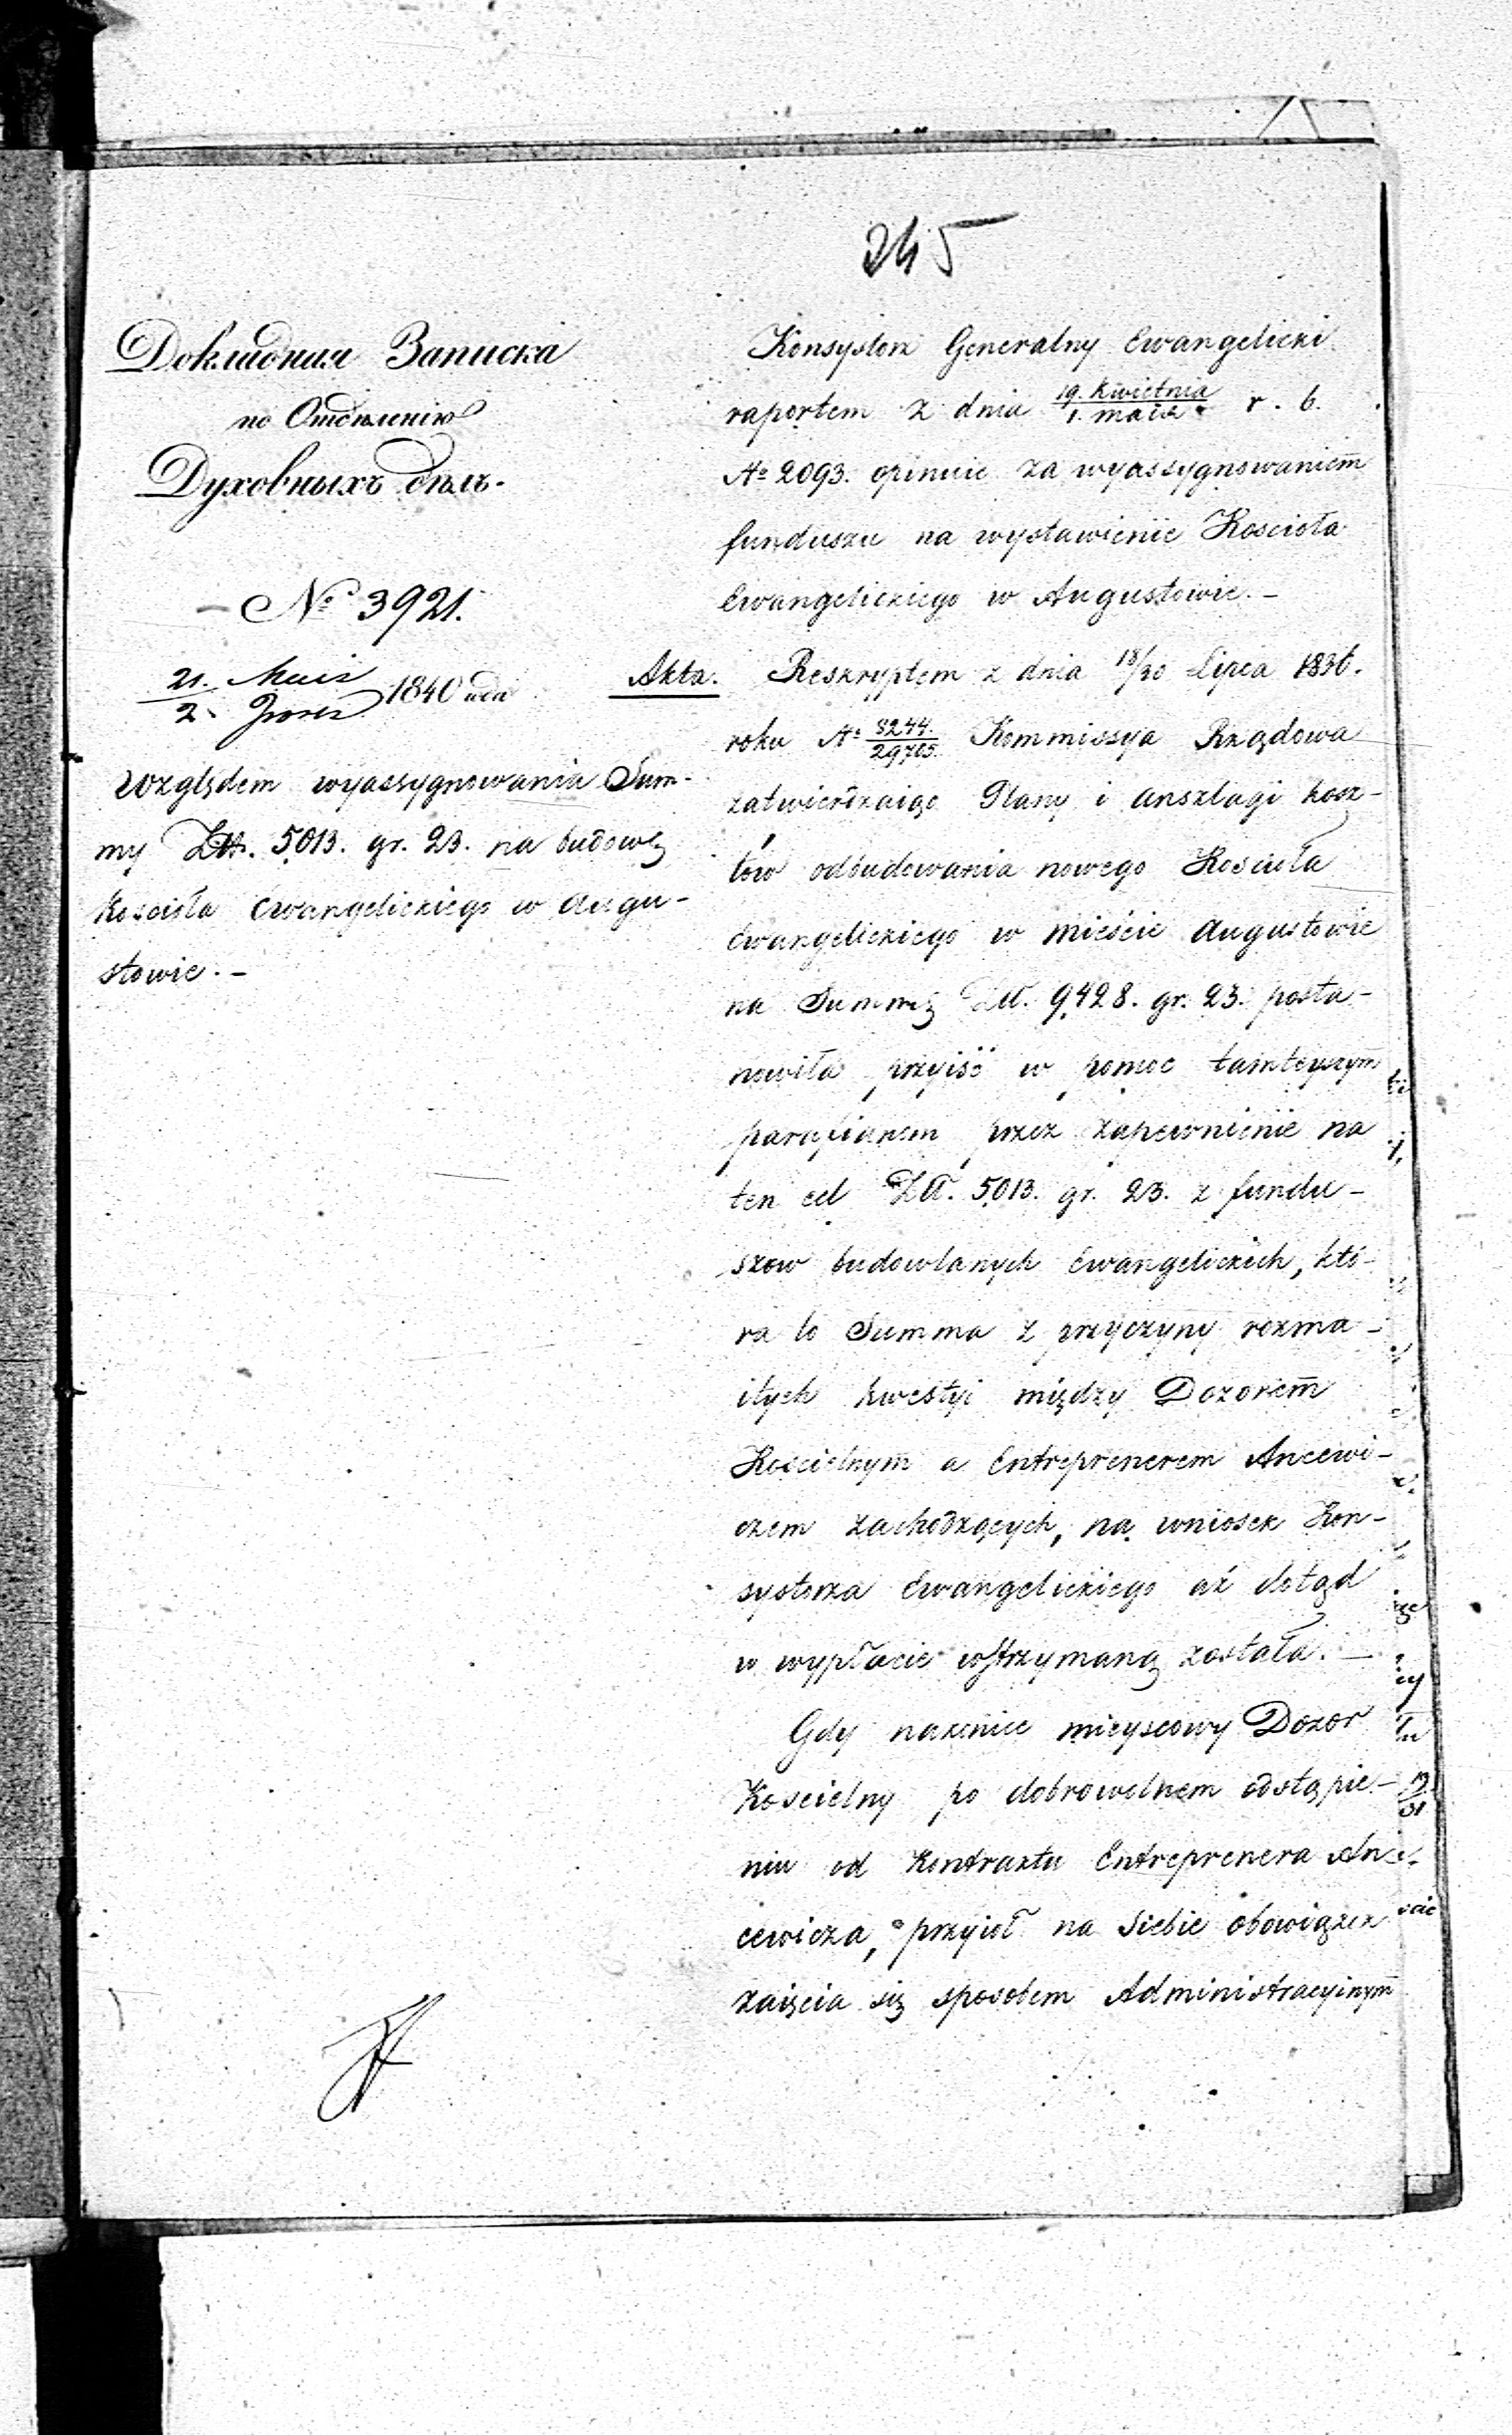 245
Докладная Записка
по Отдѣленію
Духовныхъ дѣлъ.
— № 3921.
21. Мая
2. Іюня 1840 года
Względem wyassygnowania Sum-
my Złt. 5013. gr. 23. na budowę
kościoła Ewangelickiego w Augu-
stowie. —
Konsystorz Generalny Ewangelicki
raportem z dnia 19. Kwietnia / 1. maia r. b.
№ 2093. opiniuie za wyassygnowaniem
funduszu na wystawienie Kościoła
Ewangelickiego w Augustowie. —
Akta. Reskryptem z dnia 18/30 Lipca 1836.
roku № 8244/29705. Kommissya Rządowa
zatwierdzaiąc Plany i anszlagi kosz-
tów odbudowania nowego Kościoła
Ewangelickiego w mieście Augustowie
na Summę Złt. 9,428. gr. 23. posta-
nowiła przyiść w pomoc tamteyszym
parafianom przez zapewnienie na
ten cel Złt. 5013. gr. 23. z fundu-
szow budowlanych Ewangelickich, któ-
ra to Summa z przyczyny rozma-
itych kwestyi między Dozorem
Kościelnym a Entreprenerem Ancewi-
czem zachodzących, na wniosek Kon-
systorza Ewangelickiego aż dotąd
w wypłacie wstrzymaną została. —
Gdy nakoniec mieyscowy Dozor
Kościelny po dobrowolnem odstąpie-
niu od Kontraktu Entreprenera An-
cewicza, przyioł na siebie obowiązek
zaięcia się sposobem Administracyinym